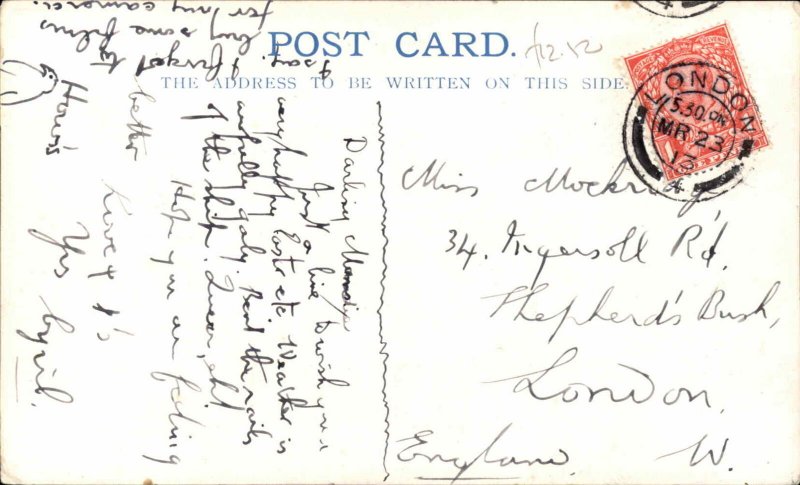 POST CARD.
THE ADDRESS TO BE WRITTEN ON THIS SIDE.
LONDON
5.30 PM
MR 23
Miss Mockridge
34. Ingersoll Rd.
Shepherd's Bush,
London.
England. W.
Darling
Just a line to wish you a
very happy Easter etc. Weather is
awfully jaly. Bent the rails
of the ship. Queer, eh!
Hope you are feeling
better
Love & x's
Yrs Cyril.
How's
I say. I forgot to
buy some films
for my camera.